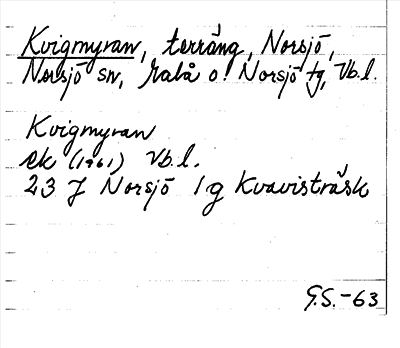 Kvigmyran, terräng, Norsjö,
Norsjö sn, Malå o. Norsjö tg, Vb.l.
Kvigmyran
ek (1961) Vb.l.
23 J Norsjö 1g Kvavisträsk
G.S.-63